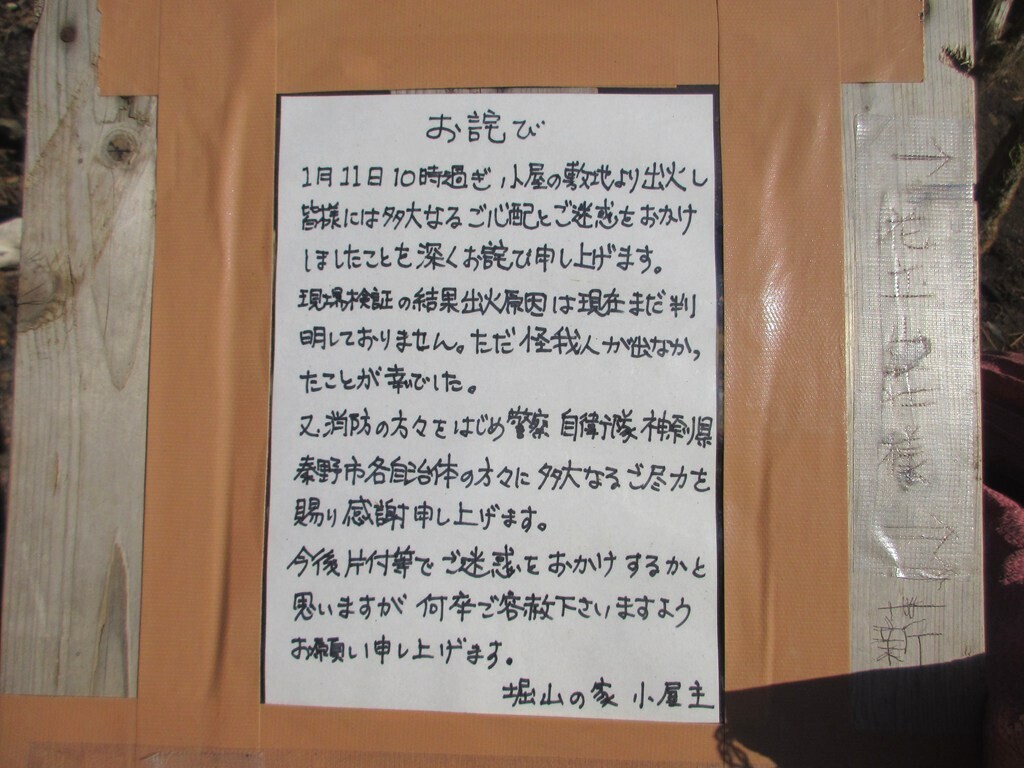 お詫び
1月11日10時過ぎ 小屋の敷地より出火し
皆様には多大なるご心配とご迷惑をおかけ
しましたことを深くお詫び申し上げます。
現場検証の結果出火原因は現在まだ判
明しておりません。ただ怪我人が出なかっ
たことが幸でした。
又、消防の方々をはじめ警察 自衛隊 神奈川県
秦野市各自治体の方々に多大なるご尽力を
賜り感謝申し上げます。
今後片付等でご迷惑をおかけするかと
思いますが 何卒ご容赦下さいますよう
お願い申し上げます。
堀山の家 小屋主